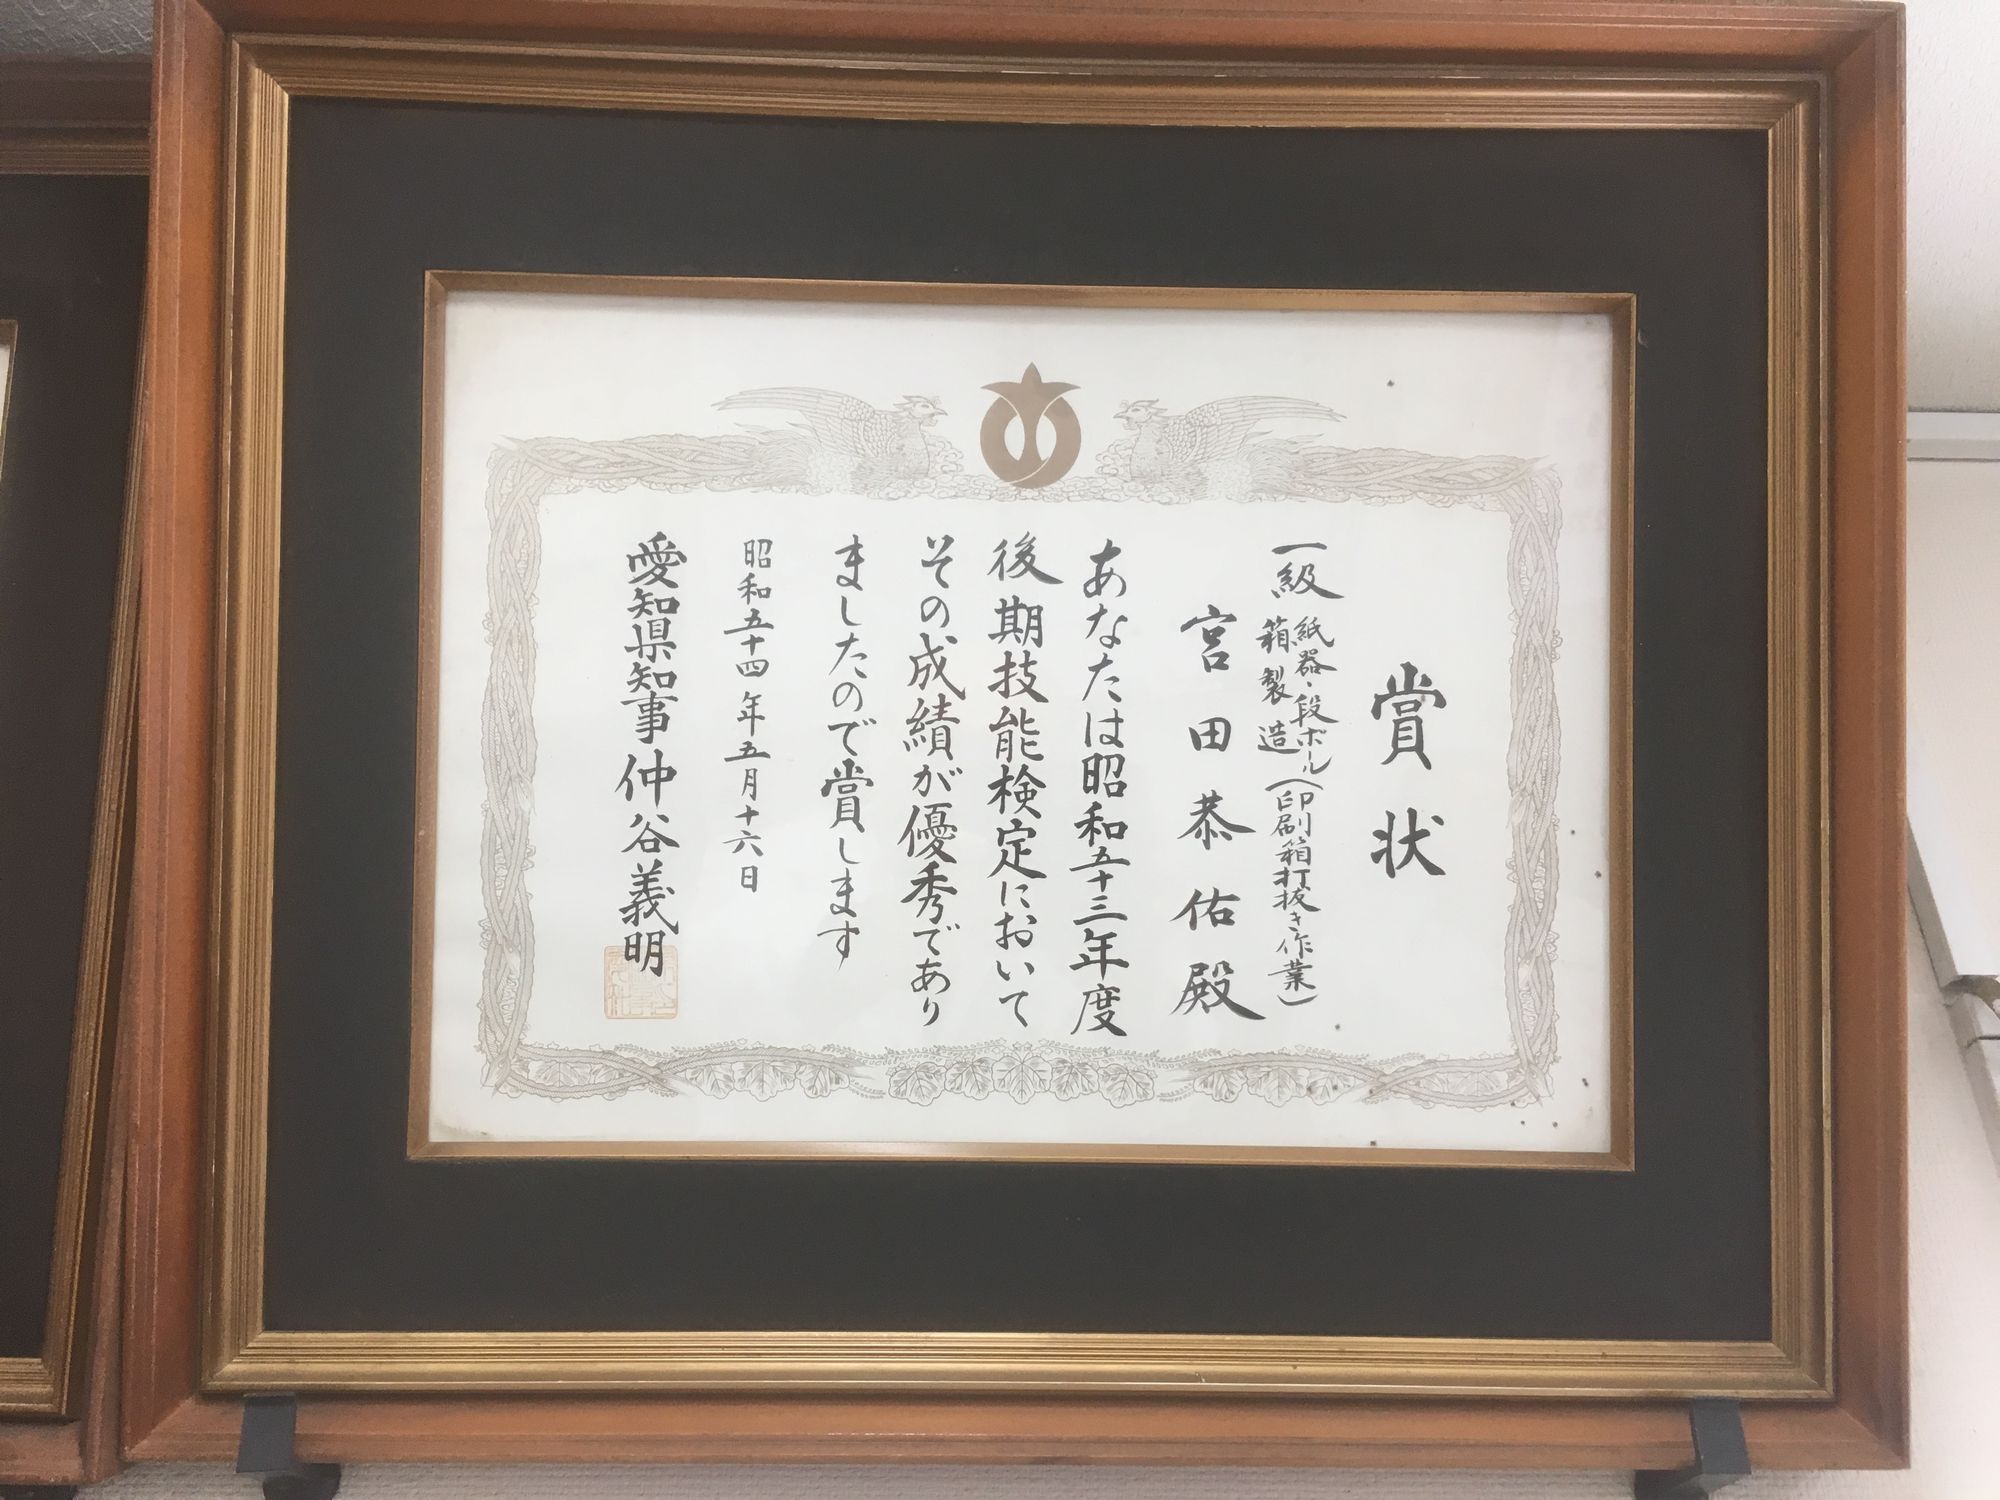 賞状
一級 紙器・段ボール箱製造(印刷箱打抜き作業)
宮田恭佑殿
あなたは昭和五十三年度
後期技能検定において
その成績が優秀であり
ましたので賞します
昭和五十四年五月十六日
愛知県知事 仲谷義明